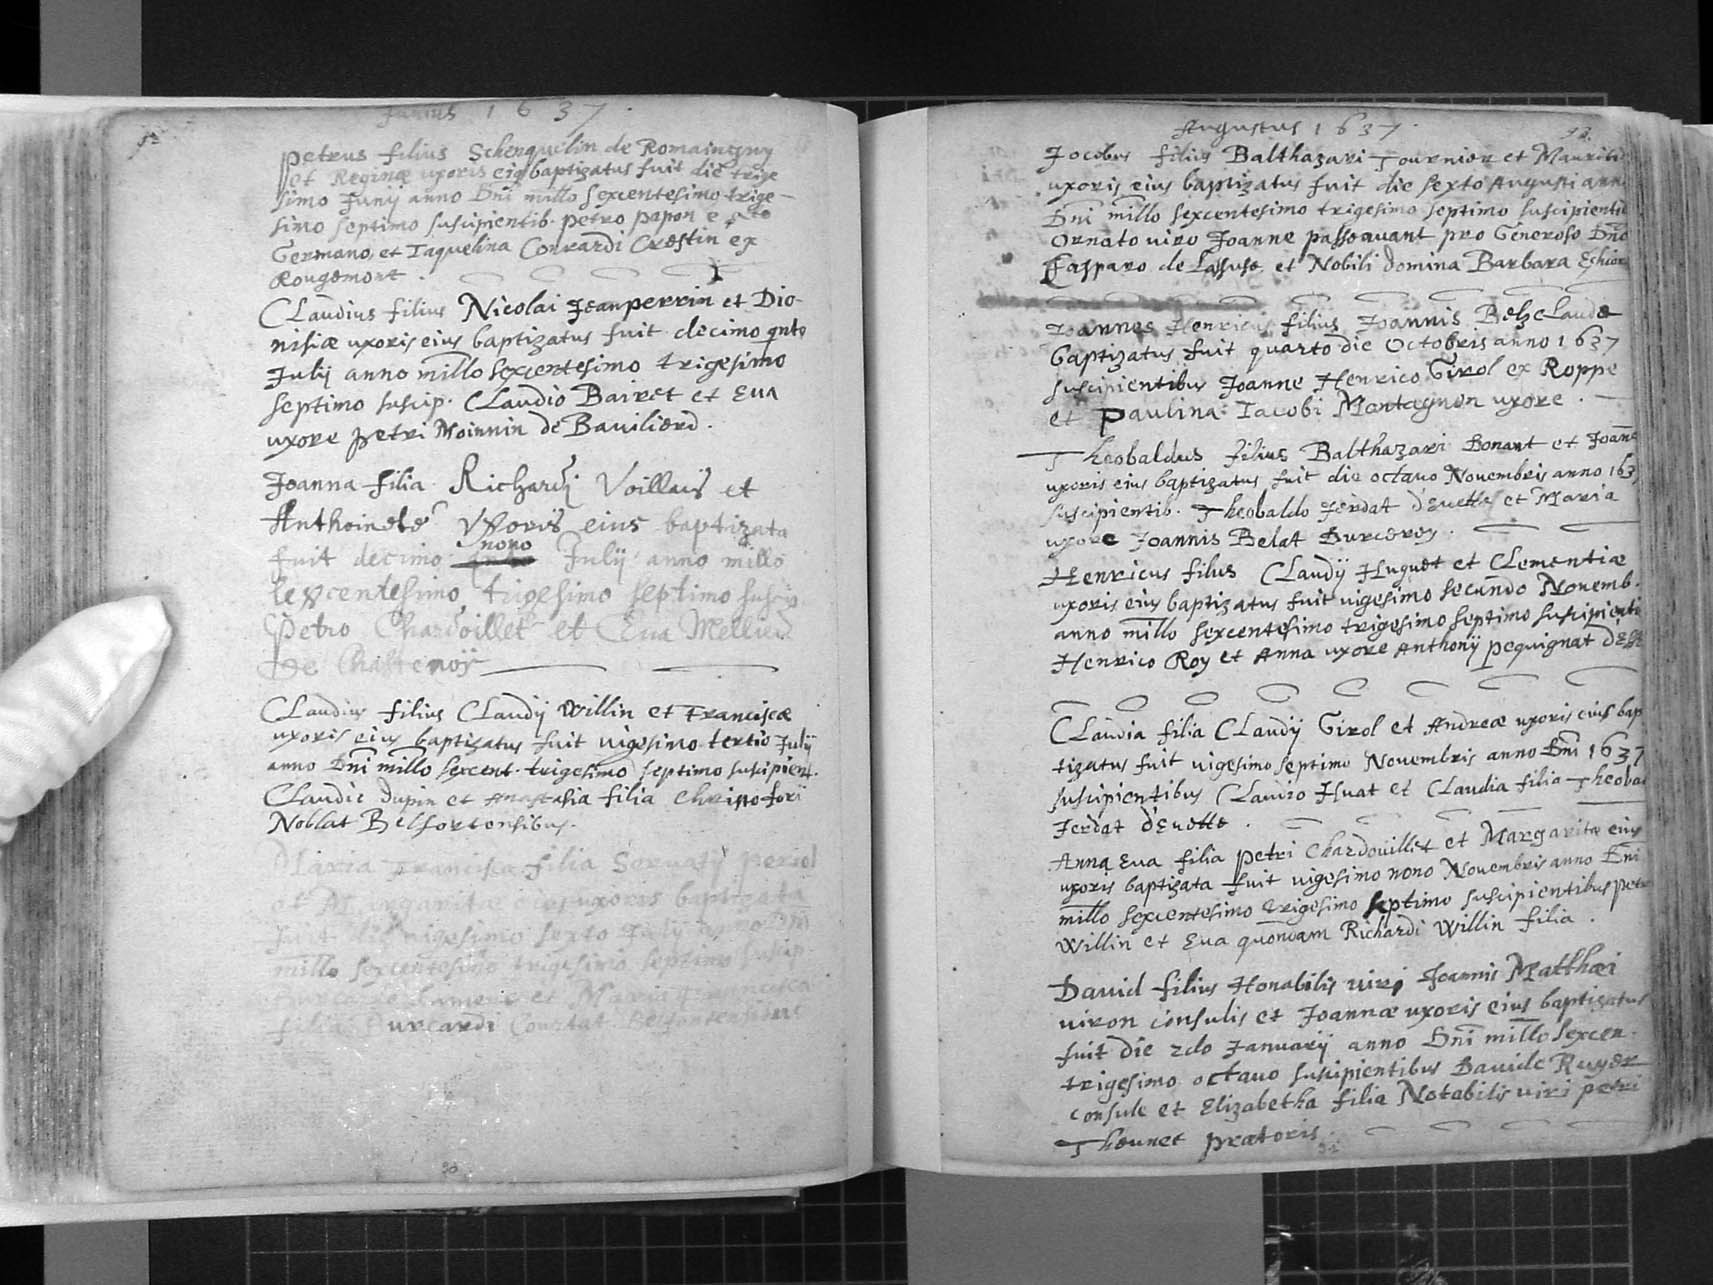 Junius 1637.
52
Petrus filius Schenquelin de Romaingny
et Reginæ uxoris eiq baptizatus fuit die trige
simo Junij anno Dni millo sexcentesimo trige-
simo septimo suscipientib. petro papon e
Germano et Iaquelina Conrardi Crestin ex
Rougemont.
Claudius filius Nicolai Jeanperrin et Dio-
nisiæ uxoris eius baptizatus fuit decimo qnto
Julij anno millo sexcentesimo trigesimo
septimo suscip. Claudio Bairet et Eua
uxore petri Moinnin de Bauilierd.
Joanna filia Richardj Voillais et
Anthoinete Vxoris eius baptizata
nono
fuit decimo Julij anno millo
sexcentesimo trigesimo septimo suscip
Petro Chardoillet et Eua
De Chastenoÿ
Claudius filius Claudij Willin et Franciscæ
uxoris eius baptizatus fuit uigesimo tertio Julij
anno Dni millo sexcent. trigesimo septimo suscipient.
Claudio Dupin et Anastasia filia Christofori
Noblat Belfortensibus.
Maria Francisca filia Seruatij periol
et Margaritæ eius uxoris baptizata
fuit die uigesimo sexto Julij anno Dni
millo sexcentesimo trigesimo septimo suscip.
et Maria Francisca
filia Burcardi Courtat Belfortensibus
30
Augustus 1637.
52.
Jocobus filius Balthazari Tournier et Mauriti
uxoris eius baptizatus fuit die sexto Augusti ann
Dni millo sexcentesimo trigesimo septimo suscipienti
Ornato uiro Joanne passauant pro Generoso Dno
Casparo de et Nobili domina Barbara
Joannes Henricus filius Joannis Belzclaude
baptizatus fuit quarto die Octobris anno 1637
suscipientibus Joanne Henrico Girol ex Roppe
et Paulina Iacobi Montagnon uxore.
Theobaldus filius Balthazari Bonant et Joann
uxoris eius baptizatus fuit die octauo Nouembris anno 163
suscipientib. Theobaldo Ferdat d'Euette et Maria
uxore Joannis Belat
Henricus filius Claudij Huguet et Clementiæ
uxoris eius baptizatus fuit uigesimo secundo Nouemb.
anno millo sexcentesimo trigesimo septimo suscipienti
Henrico Roy et Anna uxore Anthonij pequignat
Claudia filia Claudij Girol et Andreæ uxoris eius bap
tizatus fuit uigesimo septimo Nouembris anno Dni 1637
suscipientibus Claudio Huat et Claudia filia Theobal
Ferdat d'Euette.
Anna Eua filia petri Chardouillet et Margaritæ eius
uxoris baptizata fuit uigesimo nono Nouembris anno Dni
millo sexcentesimo trigesimo septimo suscipientibus petro
Willin et Eua quondam Richardi Willin filia.
Dauid filius Honabilis uiri Joannis Matthæi
uiron consulis et Joannæ uxoris eius baptizatus
fuit die 2do Januarij anno Dni millo sexcen-
trigesimo octauo suscipientibus Dauide Royer
consule et Elizabetha filia Notabilis uiri petri
Thounet prætoris.